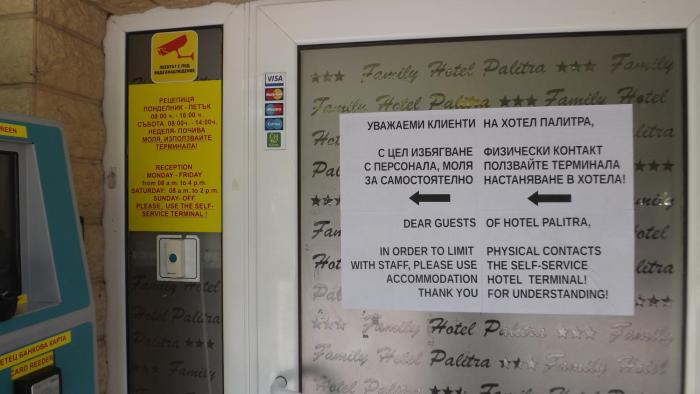 ОБЕКТЪТ Е ПОД
ВИДЕОНАБЛЮДЕНИЕ
РЕЦЕПЦИЯ
ПОНДЕЛНИК - ПЕТЪК
08:00 ч. - 16:00 ч.
СЪБОТА: 08:00ч. - 14:00ч.
НЕДЕЛЯ- ПОЧИВА
МОЛЯ, ИЗПОЛЗВАЙТЕ
ТЕРМИНАЛА!
RECEPTION
MONDAY - FRIDAY
from 08 a.m. to 4 p.m.
SATURDAY: 08 a.m. to 2 p.m.
SUNDAY- OFF
PLEASE, USE THE SELF-
SERVICE TERMINAL !
VISA
MasterCard
Maestro
УВАЖАЕМИ КЛИЕНТИ НА ХОТЕЛ ПАЛИТРА,
С ЦЕЛ ИЗБЯГВАНЕ ФИЗИЧЕСКИ КОНТАКТ
С ПЕРСОНАЛА, МОЛЯ ПОЛЗВАЙТЕ ТЕРМИНАЛА
ЗА САМОСТОЯТЕЛНО НАСТАНЯВАНЕ В ХОТЕЛА!
DEAR GUESTS OF HOTEL PALITRA,
IN ORDER TO LIMIT PHYSICAL CONTACTS
WITH STAFF, PLEASE USE THE SELF-SERVICE
ACCOMMODATION HOTEL TERMINAL!
THANK YOU FOR UNDERSTANDING!
Family Hotel Palitra
Family Hotel Palitra Family Hotel
Family Hotel Palitra Family Hotel
Family Hotel Palitra Family Hotel
Hotel Palitra Family Hotel
REEN
ЕТЕЦ БАНКОВА КАРТА
CARD REEDER